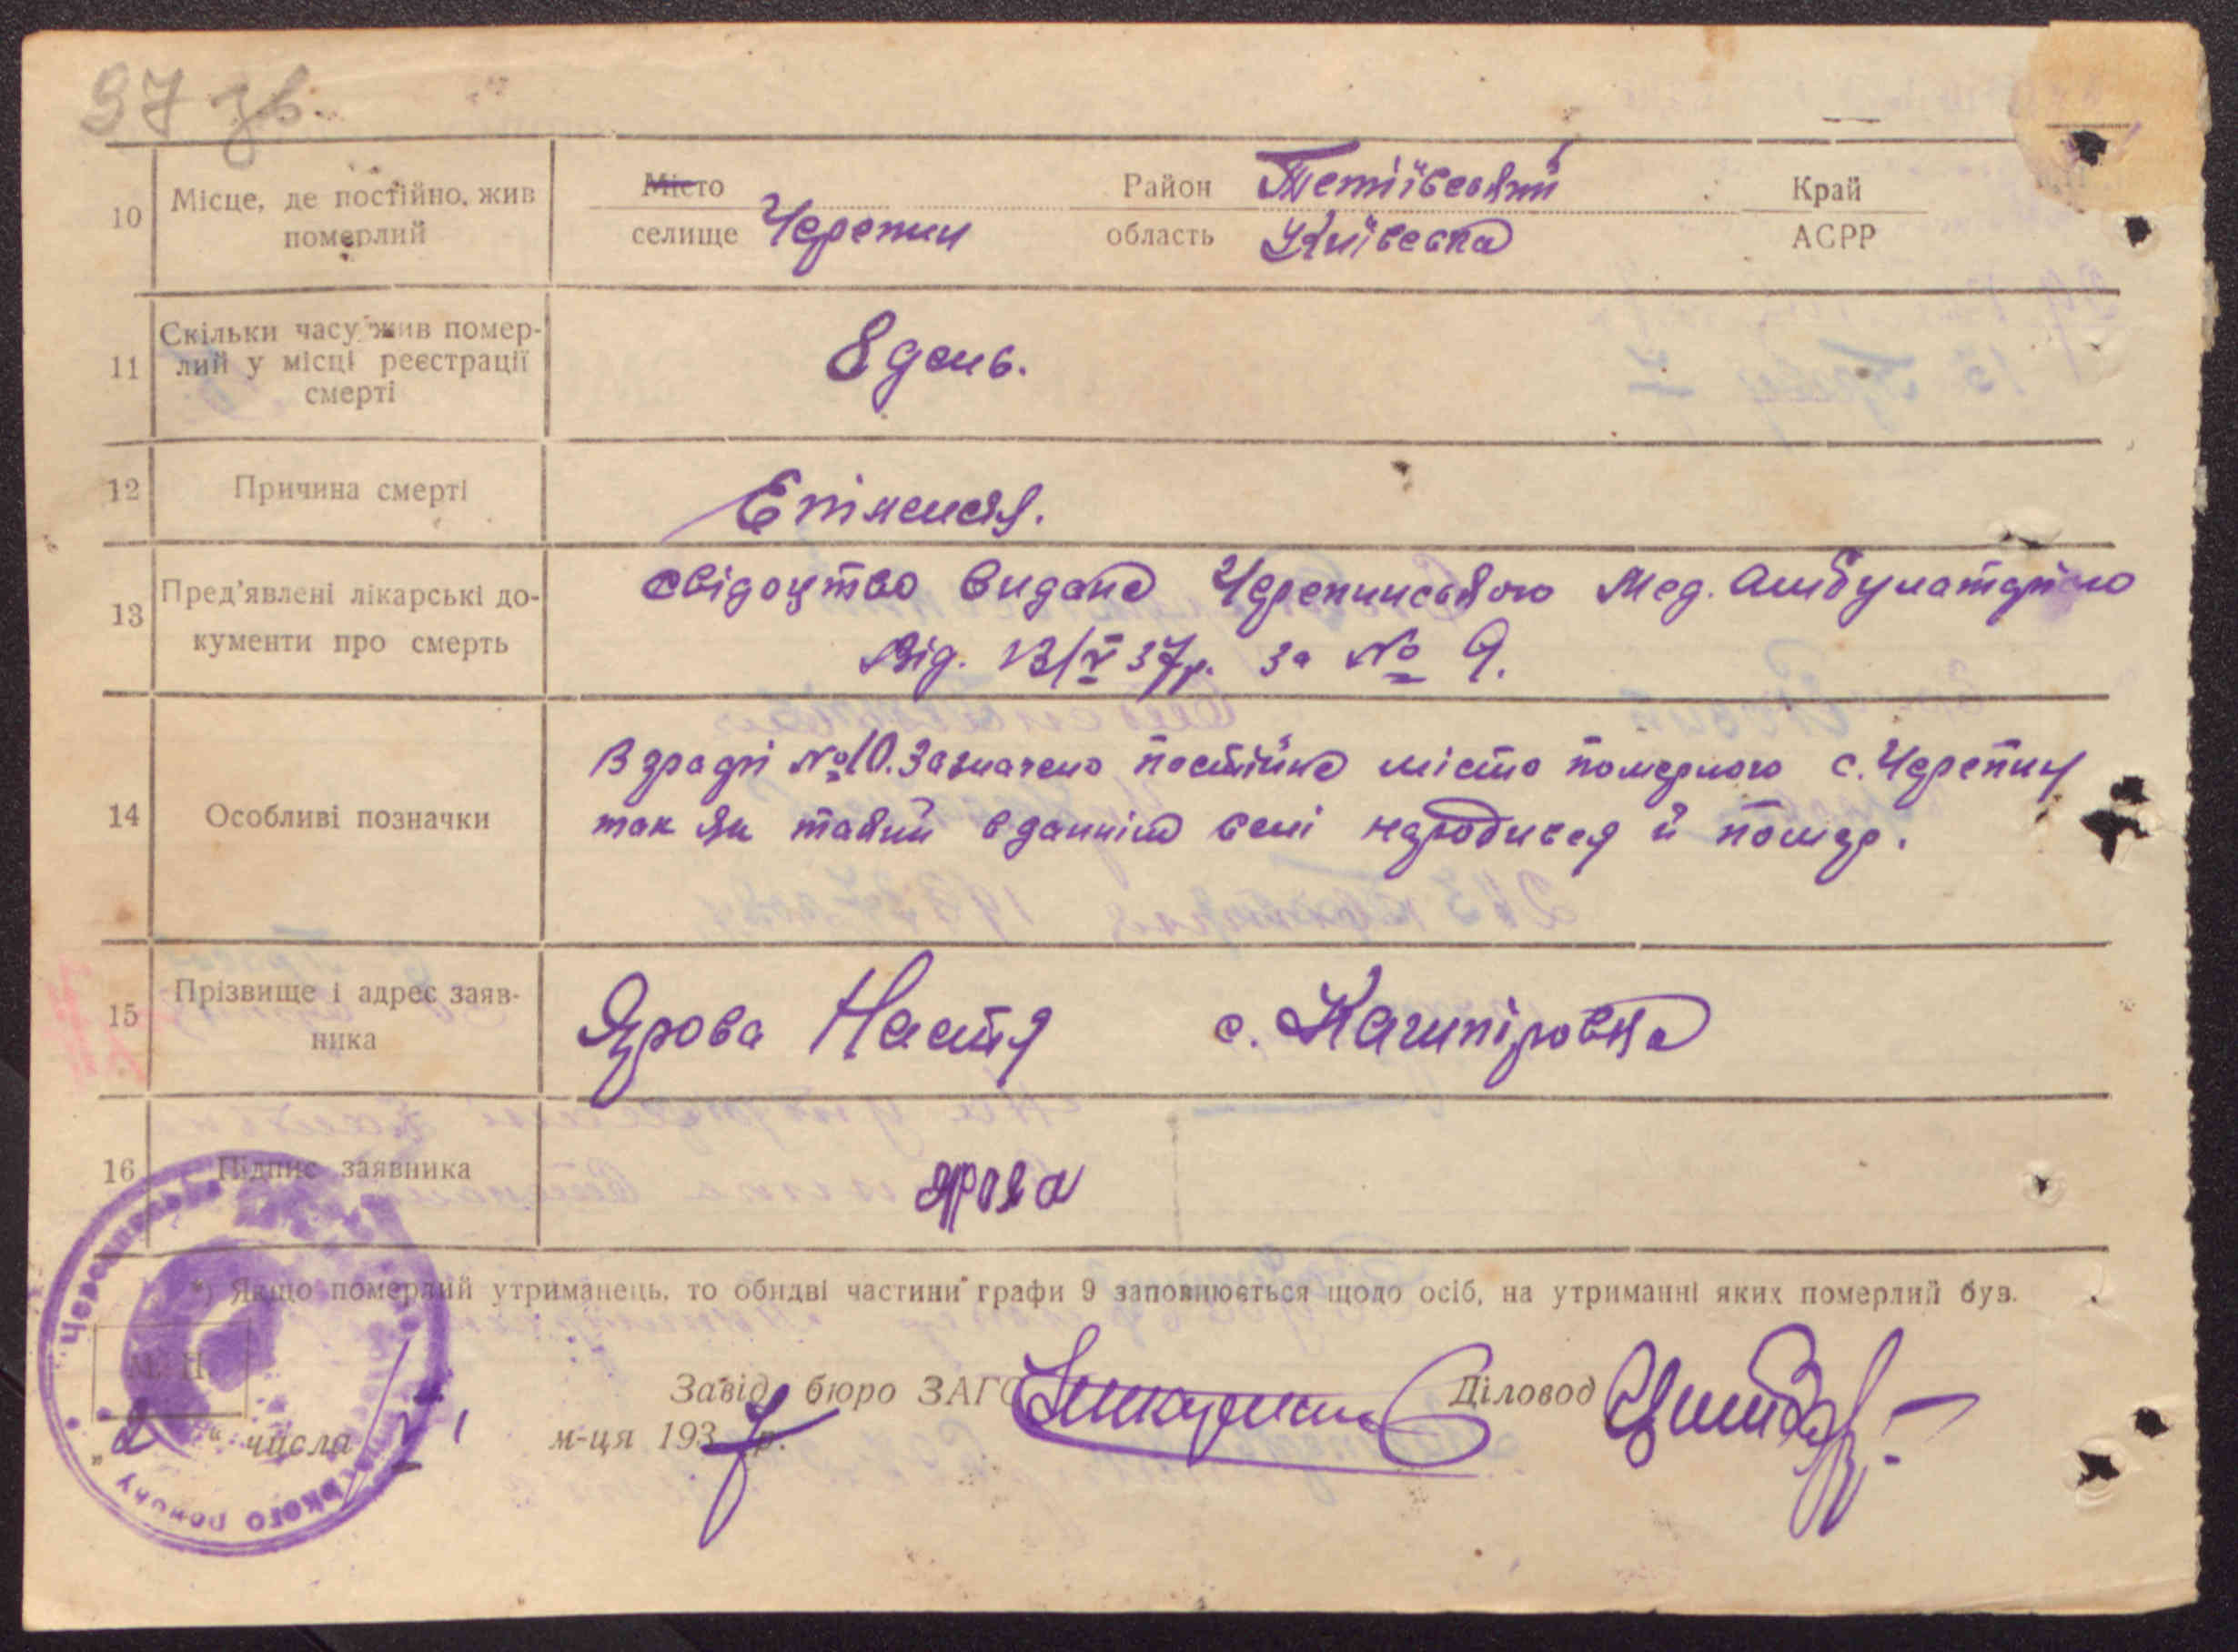 37 зв.
10 Місце, де постійно жив померлий Місто селище Черепин Район Тетіївський область Київська Край АСРР
11 Скільки часу жив померлий у місці реєстрації смерті 8 день.
12 Причина смерті Епілепсія.
13 Пред'явлені лікарські документи про смерть свідоцтво видане Черепинською Мед. Амбулаторією
Від. 13/V 37р. за № 9.
14 Особливі позначки В графі №10. Зазначено постійне місто померлого с. Черепин
так як такий в данніш селі неродився й помер.
15 Прізвище і адрес заявника Ярова Настя с. Кашпіровка
16 Підпис заявника Ярова
*) Якщо померлий утриманець, то обидві частини графи 9 заповнюється щодо осіб, на утриманні яких померлий був.
М. П.
Завід. бюро ЗАГС Діловод
„2" числа м-ця 1937р.
ського району